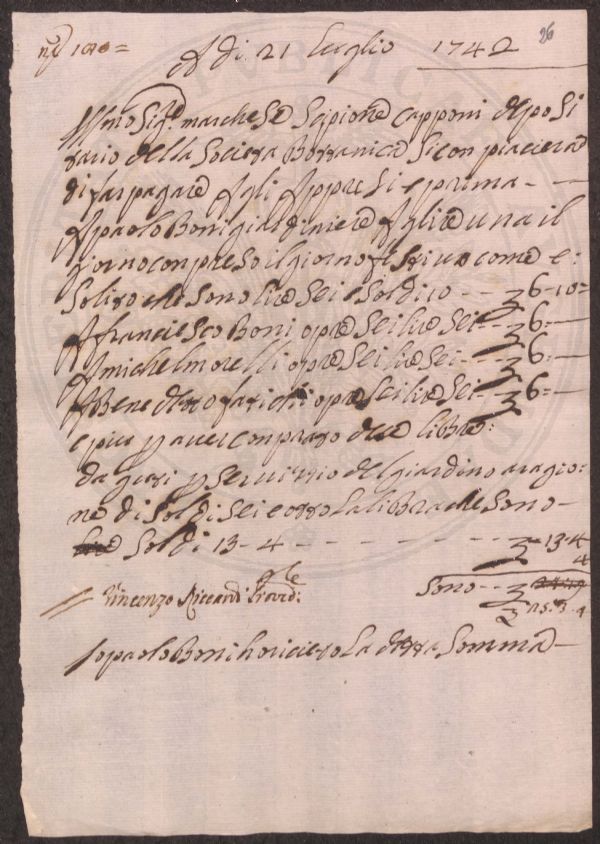 26
A di 21 Luglio 1742
Ill.mo Sig.re marchese Scipione Capponi deposi
tario della Societa Bottanica Si conpiacera
di far pagare Agli Appresi e prima - -
A paolo Boni giardiniere A lire una il
giorno conpreso il giorno festivo come e:
Solito che sono lire sei e Soldi 10 - - 6-10=
A franciesco Boni opre sei lire sei - 6=-
A michel morelli opre sei lire sei - 6=-
A Benedetto farichi opre sei lire sei - 6=-
e piu p aver conprato due libbre:
da p servitio del giardino a ragio=
ne di Soldi sei e otto la libbra che Sono -
Soldi 13-4 - - - - - - 13-4
Sono - -
Vincenzo Riccardi
Io paolo Boni ho riceuto La detta Somma -